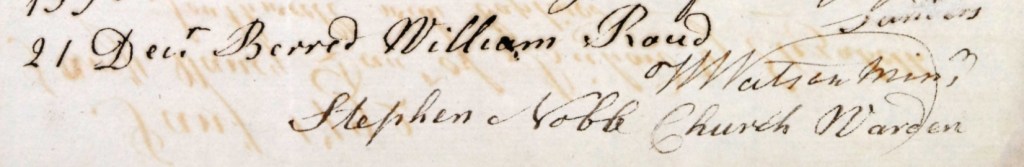 21 Decr Berred William Roud
W Watson Minr
Stephen Noble Church Warden